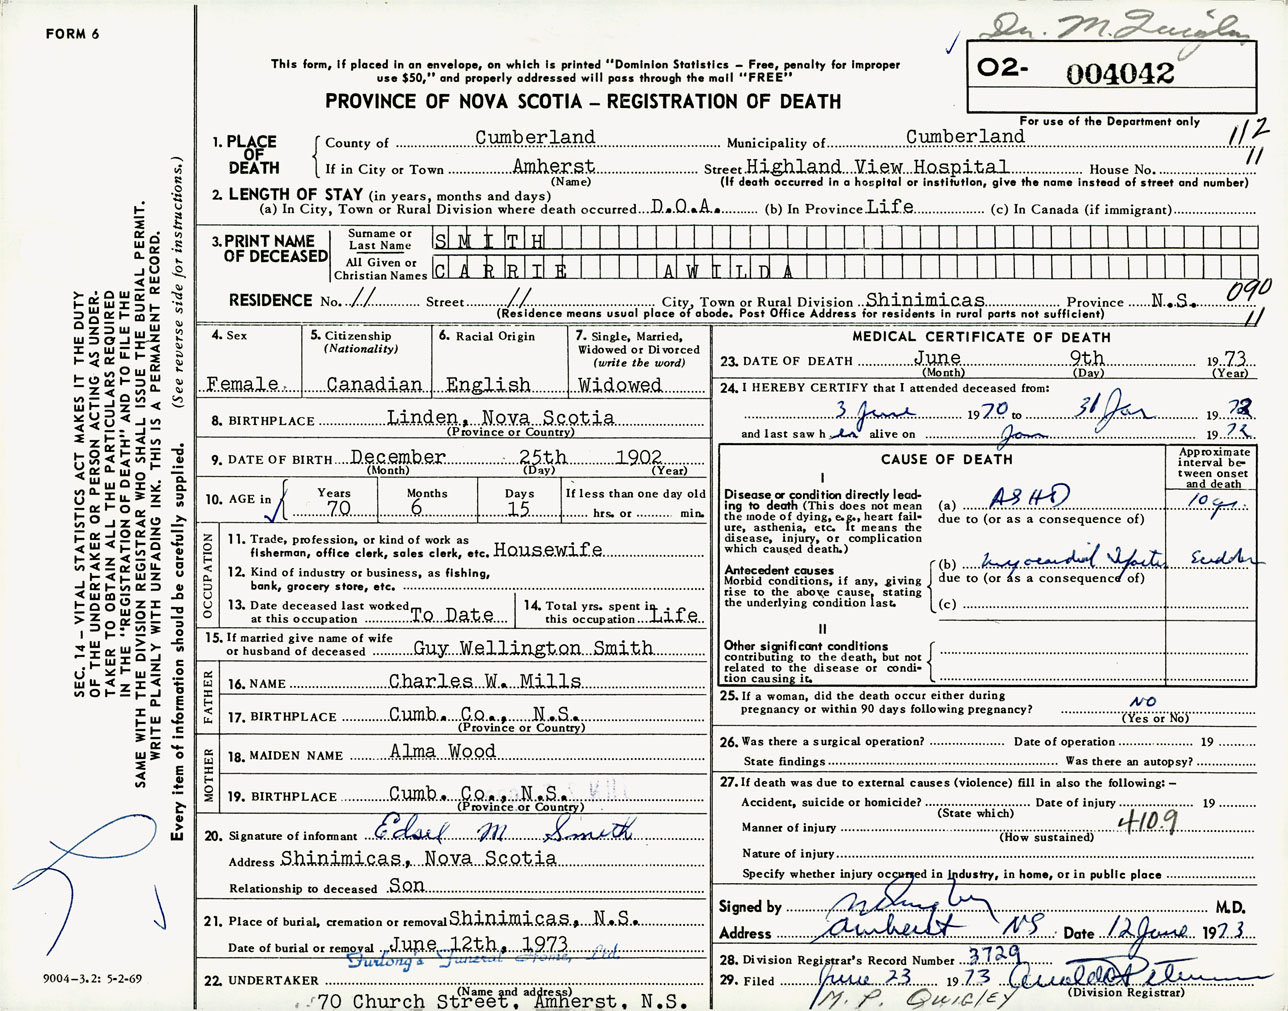 FORM 6
Dr. M. Quigley
This form, if placed in an envelope, on which is printed "Dominion Statistics – Free, penalty for improper
use $50," and properly addressed will pass through the mail "FREE"
O2- 004042
PROVINCE OF NOVA SCOTIA – REGISTRATION OF DEATH
For use of the Department only
112
11
1. PLACE OF DEATH
County of Cumberland Municipality of Cumberland
If in City or Town Amherst Street Highland View Hospital House No.
(Name) (If death occurred in a hospital or institution, give the name instead of street and number)
2. LENGTH OF STAY (in years, months and days)
(a) In City, Town or Rural Division where death occurred D.O.A. (b) In Province Life (c) In Canada (if immigrant)
3. PRINT NAME OF DECEASED
Surname or Last Name SMITH
All Given or Christian Names CARRIE AWILDA
RESIDENCE No. // Street // City, Town or Rural Division Shinimicas Province N.S.
090
11
(Residence means usual place of abode. Post Office Address for residents in rural parts not sufficient)
4. Sex
Female
5. Citizenship
(Nationality)
Canadian
6. Racial Origin
English
7. Single, Married,
Widowed or Divorced
(write the word)
Widowed
8. BIRTHPLACE Linden, Nova Scotia
(Province or Country)
9. DATE OF BIRTH December 25th 1902
(Month) (Day) (Year)
10. AGE in
Years Months Days If less than one day old
70 6 15 hrs. or min.
OCCUPATION
11. Trade, profession, or kind of work as
fisherman, office clerk, sales clerk, etc. Housewife
12. Kind of industry or business, as fishing,
bank, grocery store, etc.
13. Date deceased last worked
at this occupation To Date
14. Total yrs. spent in
this occupation Life
15. If married give name of wife
or husband of deceased Guy Wellington Smith
FATHER
16. NAME Charles W. Mills
17. BIRTHPLACE Cumb. Co., N.S.
(Province or Country)
MOTHER
18. MAIDEN NAME Alma Wood
19. BIRTHPLACE Cumb. Co., N.S.
(Province or Country)
20. Signature of informant Edsel M Smith
Address Shinimicas, Nova Scotia
Relationship to deceased Son
21. Place of burial, cremation or removal Shinimicas, N.S.
Date of burial or removal June 12th, 1973
Furlong's Funeral Home, Ltd.
22. UNDERTAKER
(Name and address)
70 Church Street, Amherst, N.S.
MEDICAL CERTIFICATE OF DEATH
23. DATE OF DEATH June 9th 1973
(Month) (Day) (Year)
24. I HEREBY CERTIFY that I attended deceased from:
3 June 1970 to 31 Jan 19
and last saw her alive on Jan 19
CAUSE OF DEATH
Approximate
interval be-
tween onset
and death
I
Disease or condition directly lead-
ing to death (This does not mean
the mode of dying, e.g., heart fail-
ure, asthenia, etc. It means the
disease, injury, or complication
which caused death.)
(a) ASHD 10 yr.
due to (or as a consequence of)
Antecedent causes
Morbid conditions, if any, giving
rise to the above cause, stating
the underlying condition last.
(b) myocardial Sudden
due to (or as a consequence of)
(c)
II
Other significant conditions
contributing to the death, but not
related to the disease or condi-
tion causing it.
25. If a woman, did the death occur either during
pregnancy or within 90 days following pregnancy? NO
(Yes or No)
26. Was there a surgical operation? Date of operation 19
State findings Was there an autopsy?
27. If death was due to external causes (violence) fill in also the following: –
Accident, suicide or homicide? Date of injury 19
(State which)
Manner of injury 4109
(How sustained)
Nature of injury
Specify whether injury occurred in industry, in home, or in public place
Signed by M.D.
Address Amherst NS Date 12 June 1973
28. Division Registrar's Record Number 3729
29. Filed June 23 1973
(Division Registrar)
M. P. QUIGLEY
SEC. 14 – VITAL STATISTICS ACT MAKES IT THE DUTY
OF THE UNDERTAKER OR PERSON ACTING AS UNDER-
TAKER TO OBTAIN ALL THE PARTICULARS REQUIRED
IN THE "REGISTRATION OF DEATH" AND TO FILE THE
SAME WITH THE DIVISION REGISTRAR WHO SHALL ISSUE THE BURIAL PERMIT.
WRITE PLAINLY WITH UNFADING INK. THIS IS A PERMANENT RECORD.
Every item of information should be carefully supplied. (See reverse side for instructions.)
9004–3.2: 5-2-69